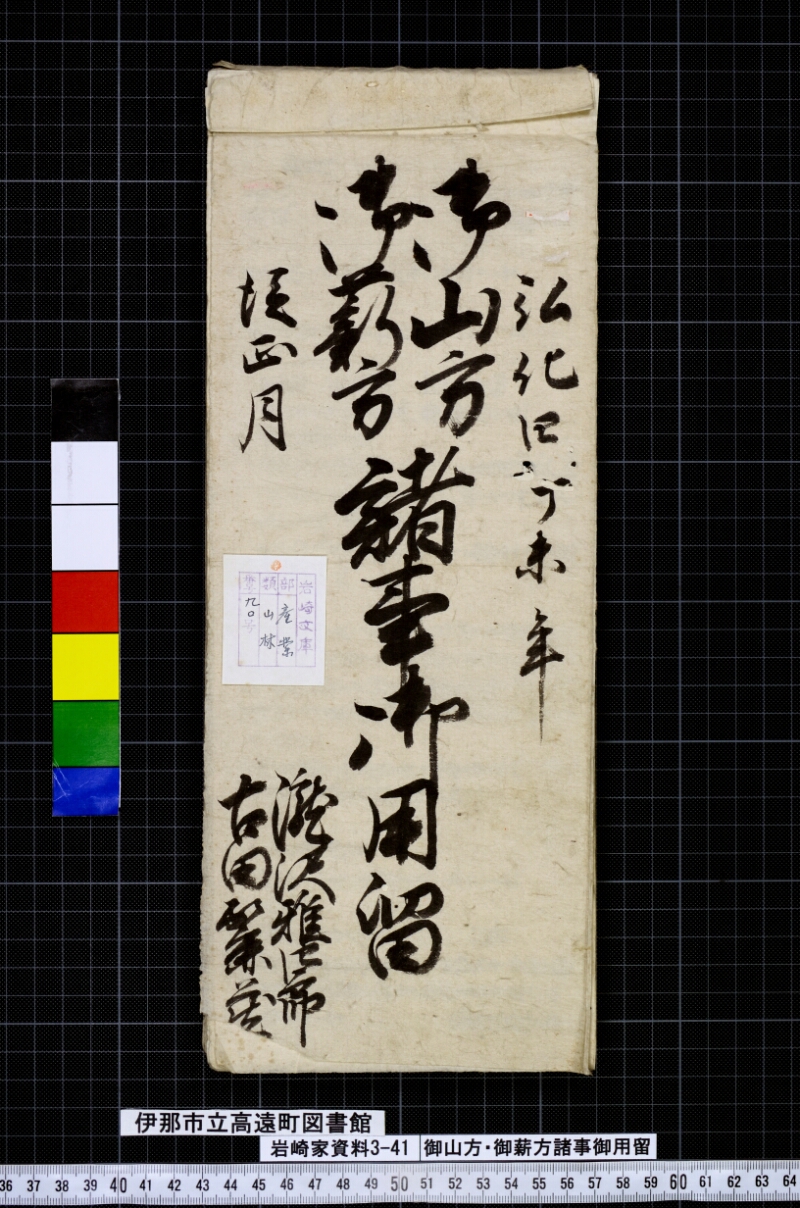 弘化四丁未年
御山方
御薪方
諸事御用留
従正月
瀧沢雅四郎
古田繁蔵
岩崎文庫
部 産業
類 山林
九〇
伊那市立高遠町図書館
岩崎家資料3-41 御山方・御薪方諸事御用留
36 37 38 39 40 41 42 43 44 45 46 47 48 49 50 51 52 53 54 55 56 57 58 59 60 61 62 63 64